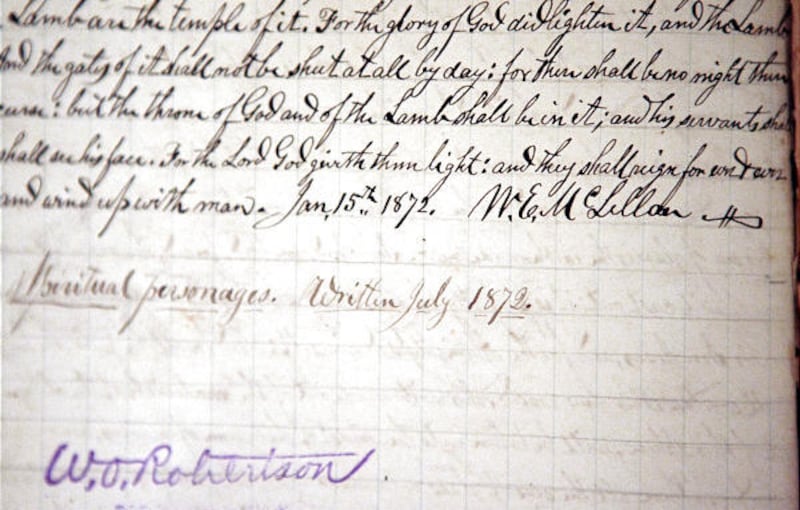 Lamb are the temple of it. For the glory of God did lighten it, and the Lamb
And the gates of it shall not be shut at all by day: for there shall be no night there
curse: but the throne of God and of the Lamb shall be in it; and his servants shall
shall see his face. For the Lord God giveth them light: and they shall reign for ever & ever
and wind up with man. Jan. 15th 1872. W. E. McLellan
Spiritual personages. Written July 1872.
W. O. Robertson